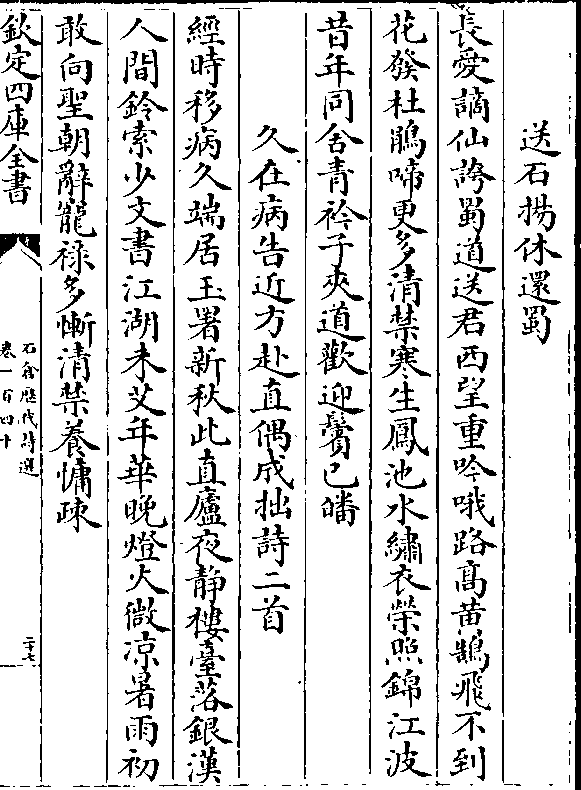 送石揚休還蜀
長愛謫仙誇蜀道送君西望重吟哦路髙黄鵠飛不到
花發杜鵑啼更多清禁寒生鳳池水繡衣榮照錦江波
昔年同舍青衿子夾道歡迎鬢已皤
久在病告近方赴直偶成拙詩二首
經時移病久端居玉署新秋此直廬夜静樓臺落銀漢
人間鈴索少文書江湖未艾年華晚燈火微凉暑雨初
敢向聖朝辭寵祿多慚清禁養慵疎
欽定四庫全書
石倉歴代詩選
卷一百四十
二十七